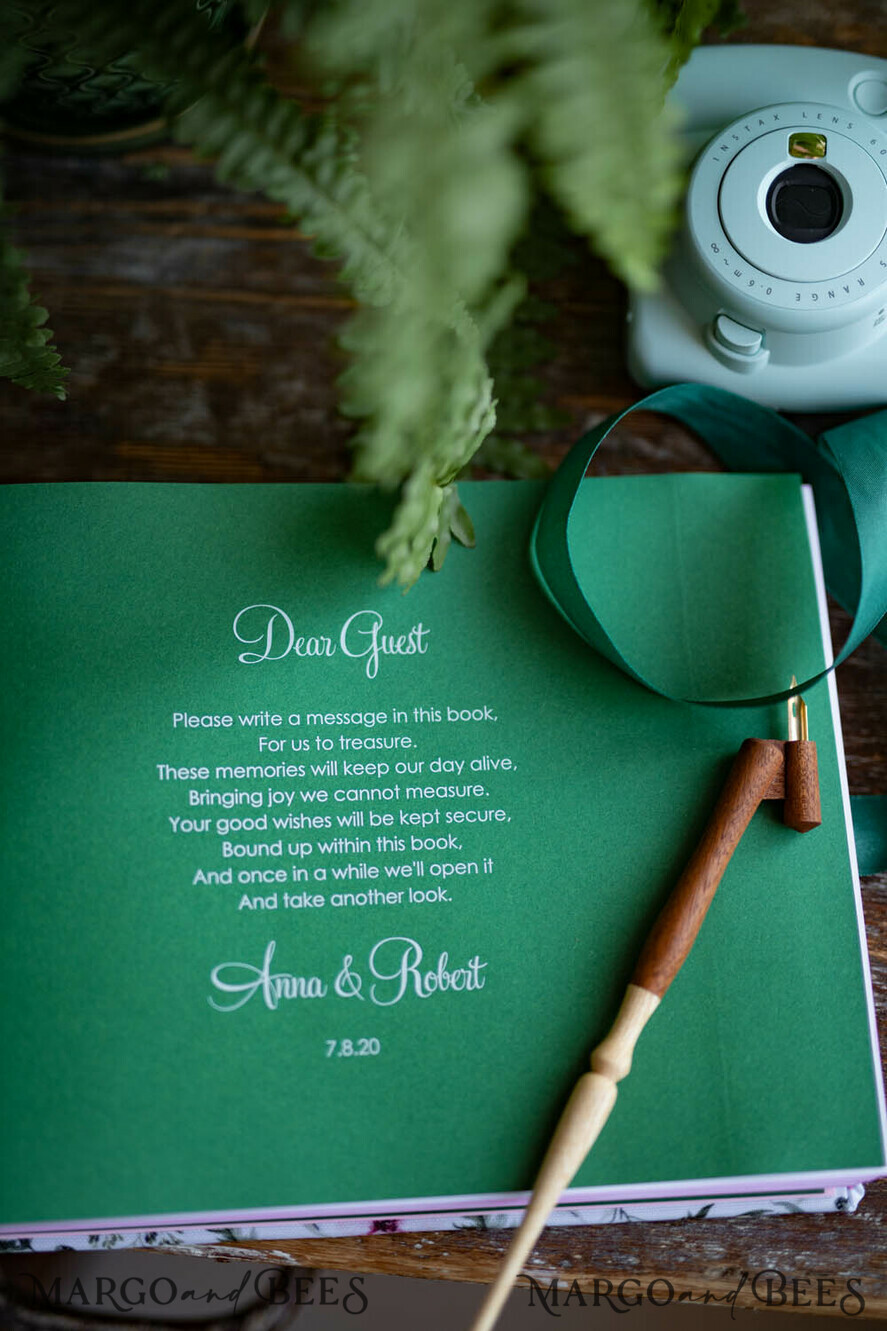 INSTAX LENS 60
RANGE 0.6m~∞
Dear Guest
Please write a message in this book,
For us to treasure.
These memories will keep our day alive,
Bringing joy we cannot measure.
Your good wishes will be kept secure,
Bound up within this book,
And once in a while we'll open it
And take another look.
Anna & Robert
7.8.20
MARGO and BEES
MARGO and BEES